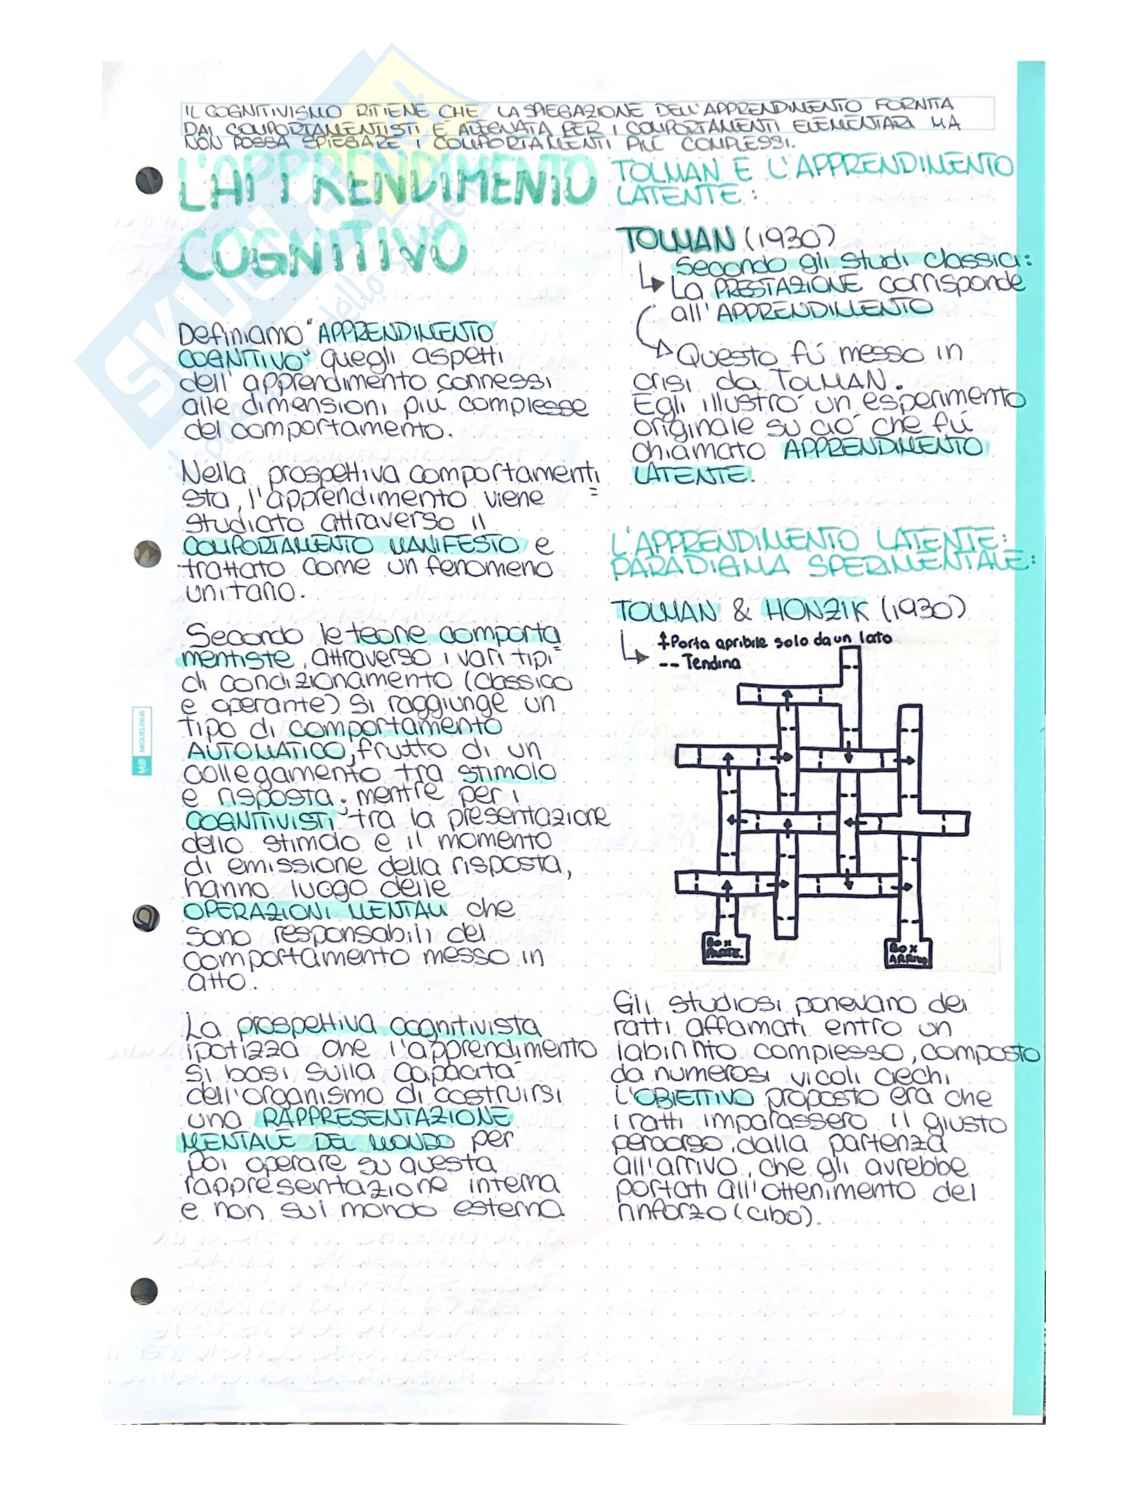 IL COGNITIVISMO RITIENE CHE LA SPIEGAZIONE DELL'APPRENDIMENTO FORNITA
DAI COMPORTAMENTISTI È ALTERNATA PER I COMPORTAMENTI ELEMENTARI MA
NON POSSA SPIEGARE I COMPORTAMENTI PIÙ COMPLESSI.
L'APPRENDIMENTO
COGNITIVO
Definiamo "APPRENDIMENTO
COGNITIVO" quegli aspetti
dell'apprendimento connessi
alle dimensioni più complesse
del comportamento.
Nella prospettiva comportamenti
sta, l'apprendimento viene =
studiato attraverso il
COMPORTAMENTO MANIFESTO e
trattato come un fenomeno
unitario.
Secondo le teorie comporta
mentiste, attraverso i vari tipi =
di condizionamento (classico
e operante) si raggiunge un
tipo di comportamento
AUTOMATICO, frutto di un
collegamento tra stimolo
e risposta. mentre per i
COGNITIVISTI tra la presentazione
dello stimolo e il momento
di emissione della risposta,
hanno luogo delle
OPERAZIONI MENTALI che
sono responsabili del
comportamento messo in
atto.
La prospettiva cognitivista
ipotizza che l'apprendimento
si basi sulla capacità
dell'organismo di costruirsi
una RAPPRESENTAZIONE
MENTALE DEL MONDO per
poi operare su questa
rappresentazione interna
e non sul mondo esterno
TOLMAN E L'APPRENDIMENTO
LATENTE:
TOLMAN (1930)
Secondo gli studi classici:
La PRESTAZIONE corrisponde
all'APPRENDIMENTO
Questo fú messo in
crisi da TOLMAN.
Egli illustró un esperimento
originale su ció che fú
chiamato APPRENDIMENTO
LATENTE.
L'APPRENDIMENTO LATENTE:
PARADIGMA SPERIMENTALE:
TOLMAN & HONZIK (1930)
Porta apribile solo da un lato
-- Tendina
BOX
PARTE.
BOX
ARRIVO
Gli studiosi ponevano dei
ratti affamati entro un
labirinto complesso, composto
da numerosi vicoli ciechi
L'OBIETTIVO proposto era che
i ratti imparassero il giusto
percorso, dalla partenza
all'arrivo, che gli avrebbe
portati all'ottenimento del
rinforzo (cibo).
SKUOLA